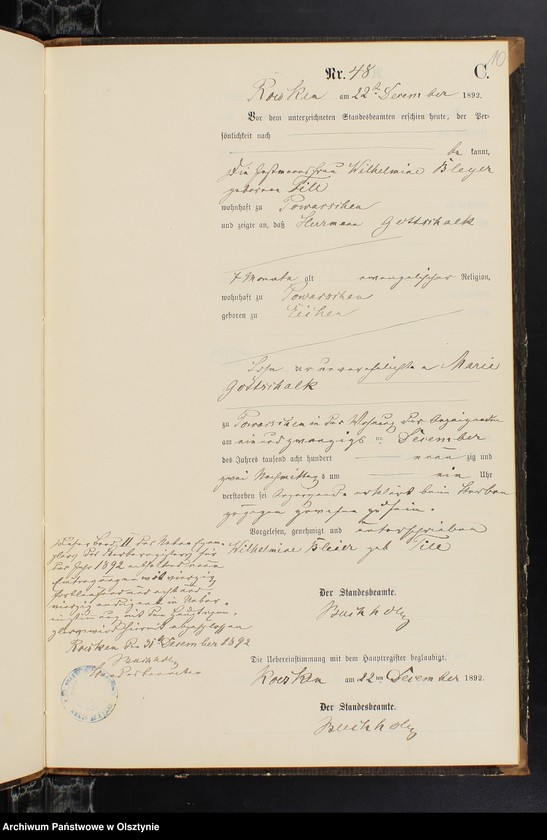 10
Nr. 48
C.
Rossken am 22ten December 1892.
Vor dem unterzeichneten Standesbeamten erschien heute, der Per-
sönlichkeit nach
be kannt,
die Wilhelmine Bleyer
geborene Till
wohnhaft zu Powarschen
und zeigte an, daß Hermann Gottschalk
7 Monate alt evangelischer Religion,
wohnhaft zu Powarschen
geboren zu Eichen
Sohn der unverehelichten Marie
Gottschalk
zu Powarschen in der Wohnung der Anzeigenden
am ein und zwanzigsten December
des Jahres tausend acht hundert neun zig und
zwei Nachmittags um ein Uhr
verstorben sei Anzeigende erklärt beim Sterben
zugegen gewesen zu sein.
Vorgelesen, genehmigt und unterschrieben
Wilhelmine Bleier geb Till
Der Standesbeamte.
Die Uebereinstimmung mit dem Hauptregister beglaubigt.
am 22ten December 1892.
Der Standesbeamte.
des Sterberegisters für
das Jahr 1892
Eintragungen
mit dem Hauptregister
wird hiermit abgeschlossen
den 31ten December 1892
Standesbeamter
Archiwum Państwowe w Olsztynie